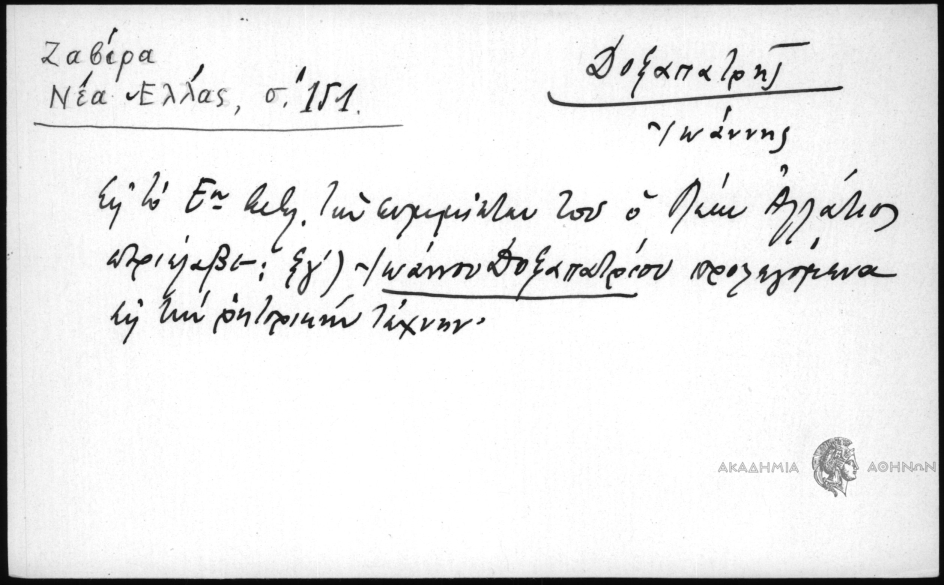 Ζαβίρα
Νέα Ἑλλάς, σ. 151.
Δοξαπατρῆς
Ἰωάννης
Εἰς τὸ βιβλ. τῶν συμμίκτων του ὁ Λέων Ἀλλάτιος
περιέλαβε: ξγ') Ἰωάννου Δοξαπατρίου προλεγόμενα
εἰς τὴν ῥητορικὴν τέχνην.
ΑΚΑΔΗΜΙΑ ΑΘΗΝΩΝ